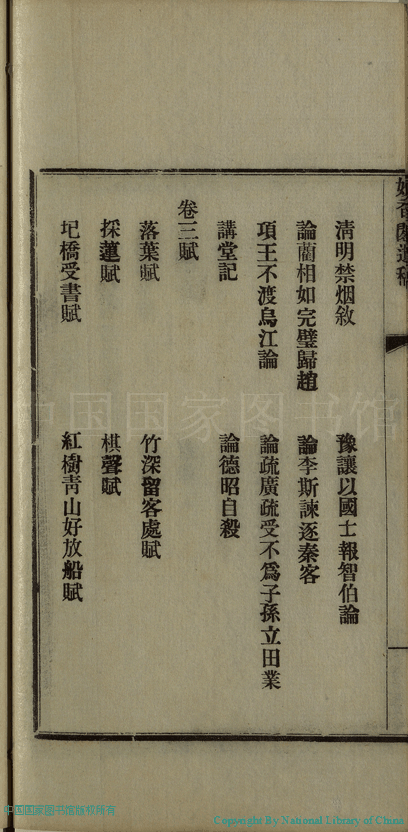 清明禁烟敘　豫讓以國士報智伯論
論藺相如完璧歸趙　論李斯諫逐秦客
項王不渡烏江論　論疏廣疏受不爲子孫立田業
講堂記　論德昭自殺
卷三賦
落葉賦　竹深留客處賦
採蓮賦　棋聲賦
圯橋受書賦　紅樹靑山好放船賦
中国国家图书馆
中国国家图书馆版权所有
Copyright By National Library of China